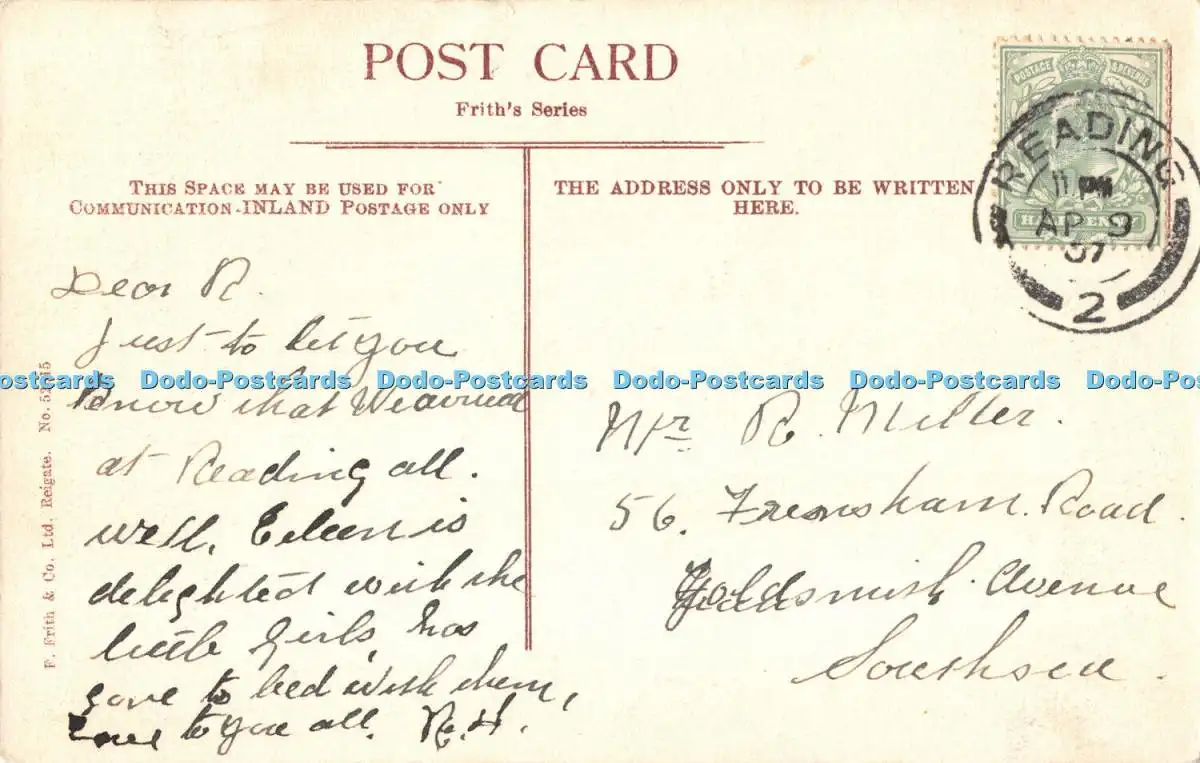 POST CARD
Frith's Series
THIS SPACE MAY BE USED FOR
COMMUNICATION-INLAND POSTAGE ONLY
THE ADDRESS ONLY TO BE WRITTEN
HERE.
POSTAGE
HALFPENNY
READING
11 PM
AP 9
07
2
Dear R.
Just to let you
know that We arrived
at Reading all.
well, Eileen is
delighted with the
little Girls, has
gone to bed with them,
Love to you all. R.H.
Mr R. Miller.
56. Frensham. Road.
Goldsmith Avenue
Southsea.
F. Frith & Co., Ltd. Reigate. No.
ostcards Dodo-Postcards Dodo-Postcards Dodo-Postcards Dodo-Postcards Dodo-Postc